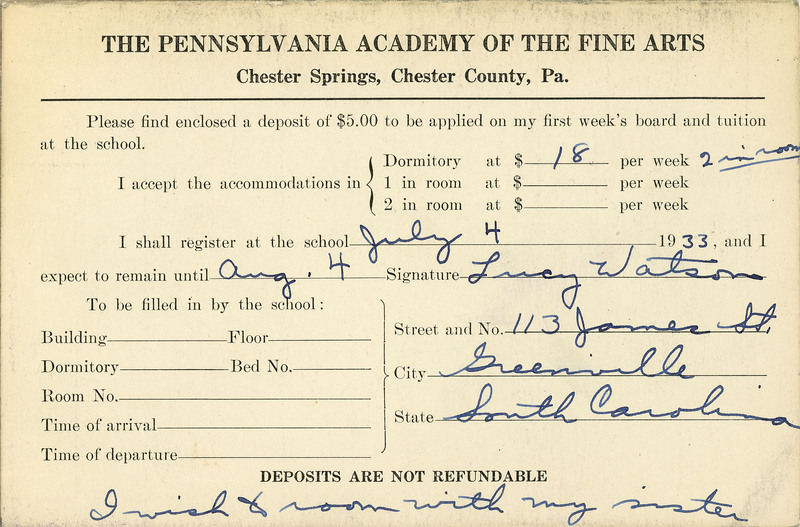 THE PENNSYLVANIA ACADEMY OF THE FINE ARTS
Chester Springs, Chester County, Pa.
Please find enclosed a deposit of $5.00 to be applied on my first week's board and tuition
at the school.
I accept the accommodations in { Dormitory at $ 18 per week 2 in room
1 in room at $ per week
2 in room at $ per week
I shall register at the school July 4 1933, and I
expect to remain until Aug. 4 Signature Lucy Watson
To be filled in by the school:
Building Floor
Dormitory Bed No.
Room No.
Time of arrival
Time of departure
Street and No. 113 James St.
City Greenville
State South Carolina
DEPOSITS ARE NOT REFUNDABLE
I wish to room with my sister